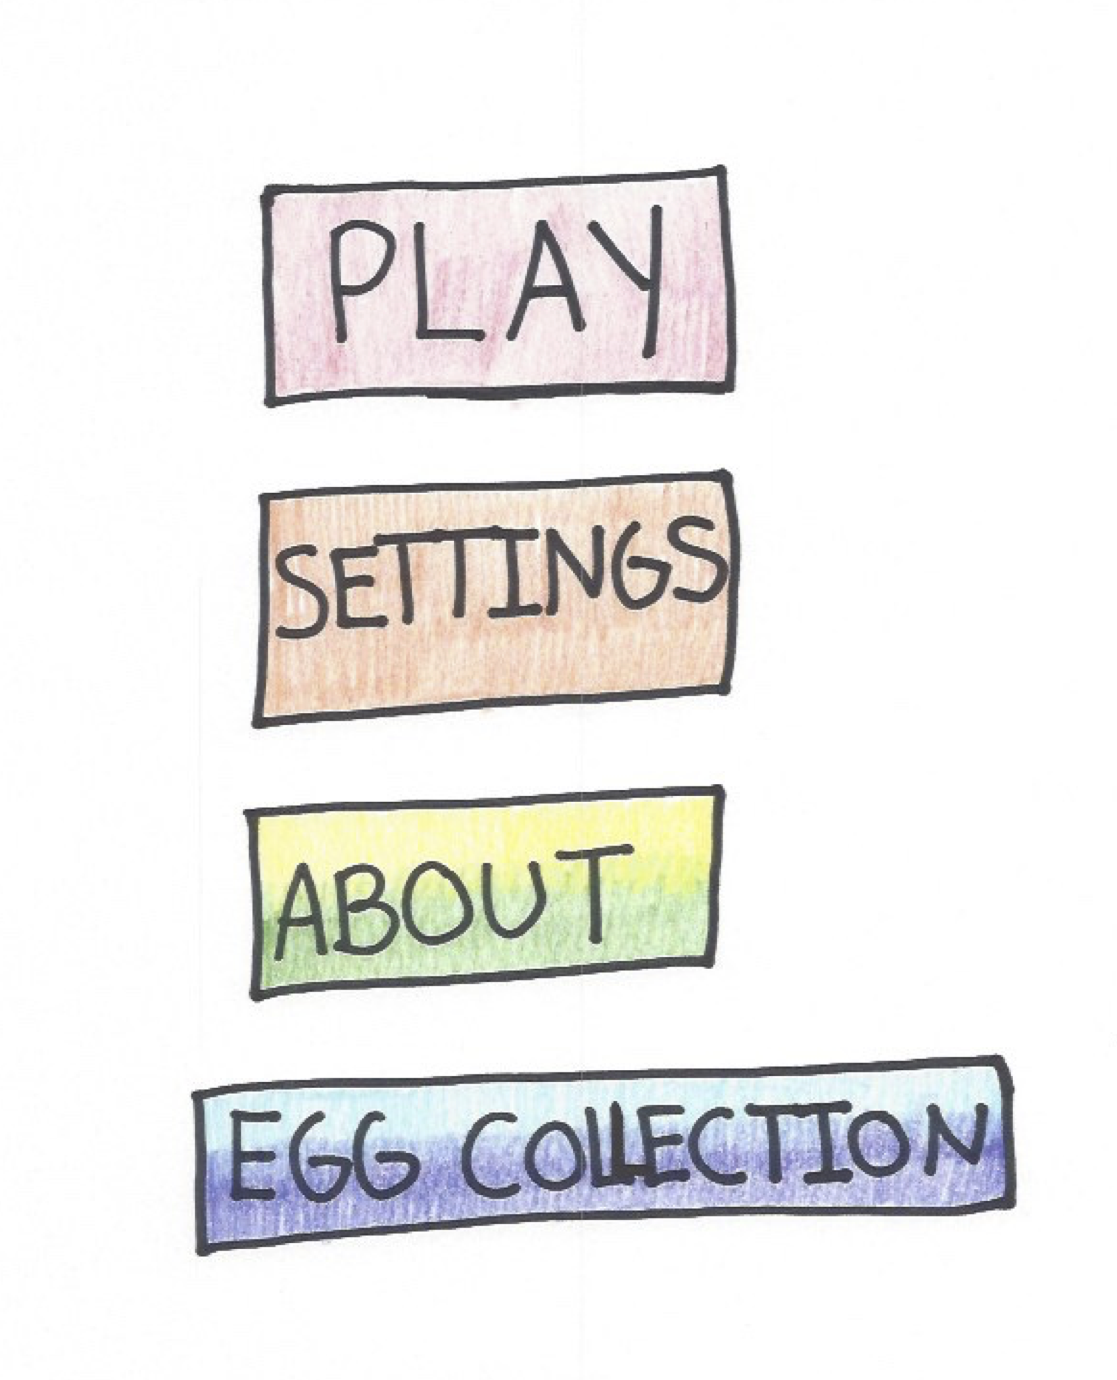 PLAY
SETTINGS
ABOUT
EGG COLLECTION